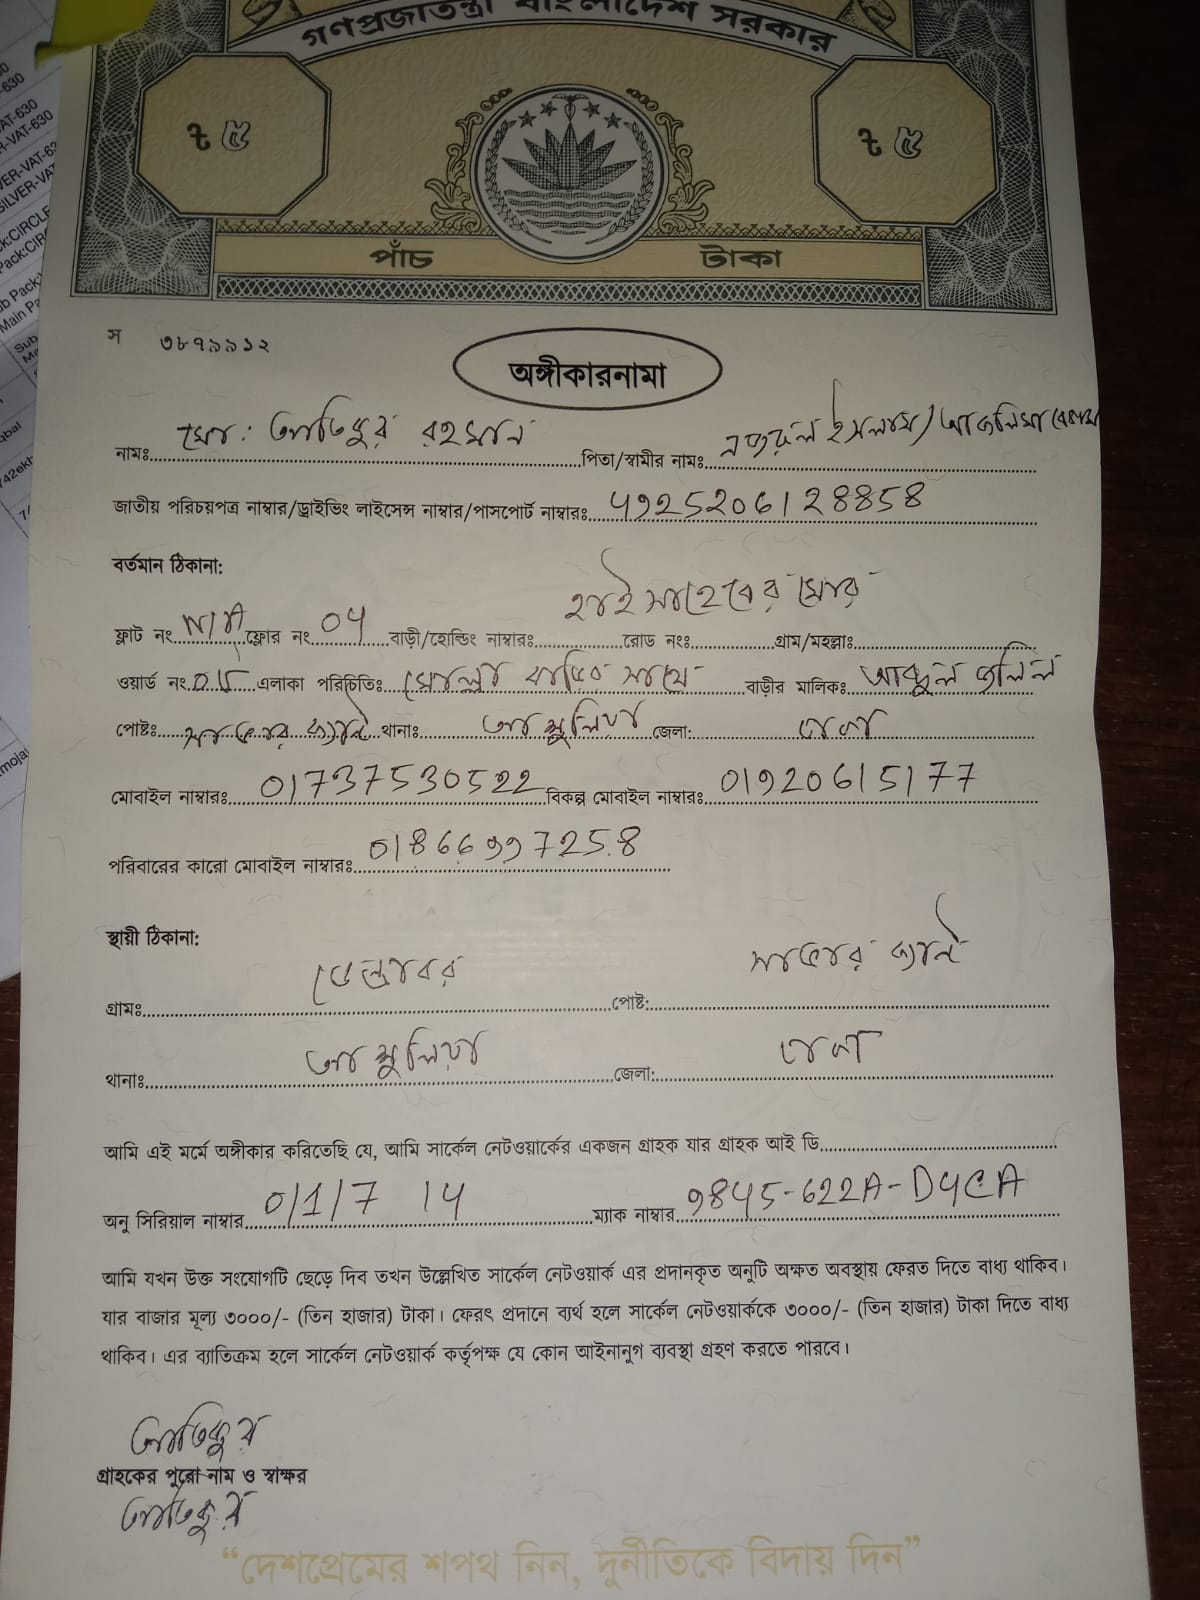 গণপ্রজাতন্ত্রী বাংলাদেশ সরকার
৳ ৫ ৳ ৫
পাঁচ টাকা
স ৩৮৭৯৯১২
অঙ্গীকারনামা
নামঃ মো: আতিকুর রহমান পিতা/স্বামীর নামঃ নজরুল ইসলাম/
জাতীয় পরিচয়পত্র নাম্বার/ড্রাইভিং লাইসেন্স নাম্বার/পাসপোর্ট নাম্বারঃ 4925206128858
বর্তমান ঠিকানা:
ফ্লাট নং N/A ফ্লোর নং 04 বাড়ী/হোল্ডিং নাম্বারঃ রোড নংঃ গ্রাম/মহল্লাঃ হাই সাহেবের মোর
ওয়ার্ড নং এলাকা পরিচিতিঃ মোল্লা বাড়ির সাথে বাড়ীর মালিকঃ আব্দুল জলিল
পোষ্টঃ থানাঃ আশুলিয়া জেলা: ঢাকা
মোবাইল নাম্বারঃ 01737530522 বিকল্প মোবাইল নাম্বারঃ 01920615177
পরিবারের কারো মোবাইল নাম্বারঃ 01866997258
স্থায়ী ঠিকানা:
গ্রামঃ পোষ্ট:
থানাঃ আশুলিয়া জেলা: ঢাকা
আমি এই মর্মে অঙ্গীকার করিতেছি যে, আমি সার্কেল নেটওয়ার্কের একজন গ্রাহক যার গ্রাহক আই ডি
অনু সিরিয়াল নাম্বার 0/1/7 14 ম্যাক নাম্বার 9845-622A-D4CA
আমি যখন উক্ত সংযোগটি ছেড়ে দিব তখন উল্লেখিত সার্কেল নেটওয়ার্ক এর প্রদানকৃত অনুটি অক্ষত অবস্থায় ফেরত দিতে বাধ্য থাকিব।
যার বাজার মূল্য ৩০০০/- (তিন হাজার) টাকা। ফেরৎ প্রদানে ব্যর্থ হলে সার্কেল নেটওয়ার্ককে ৩০০০/- (তিন হাজার) টাকা দিতে বাধ্য
থাকিব। এর ব্যাতিক্রম হলে সার্কেল নেটওয়ার্ক কর্তৃপক্ষ যে কোন আইনানুগ ব্যবস্থা গ্রহণ করতে পারবে।
আতিকুর
গ্রাহকের পুরো নাম ও স্বাক্ষর
আতিকুর
“দেশপ্রেমের শপথ নিন, দুর্নীতিকে বিদায় দিন”